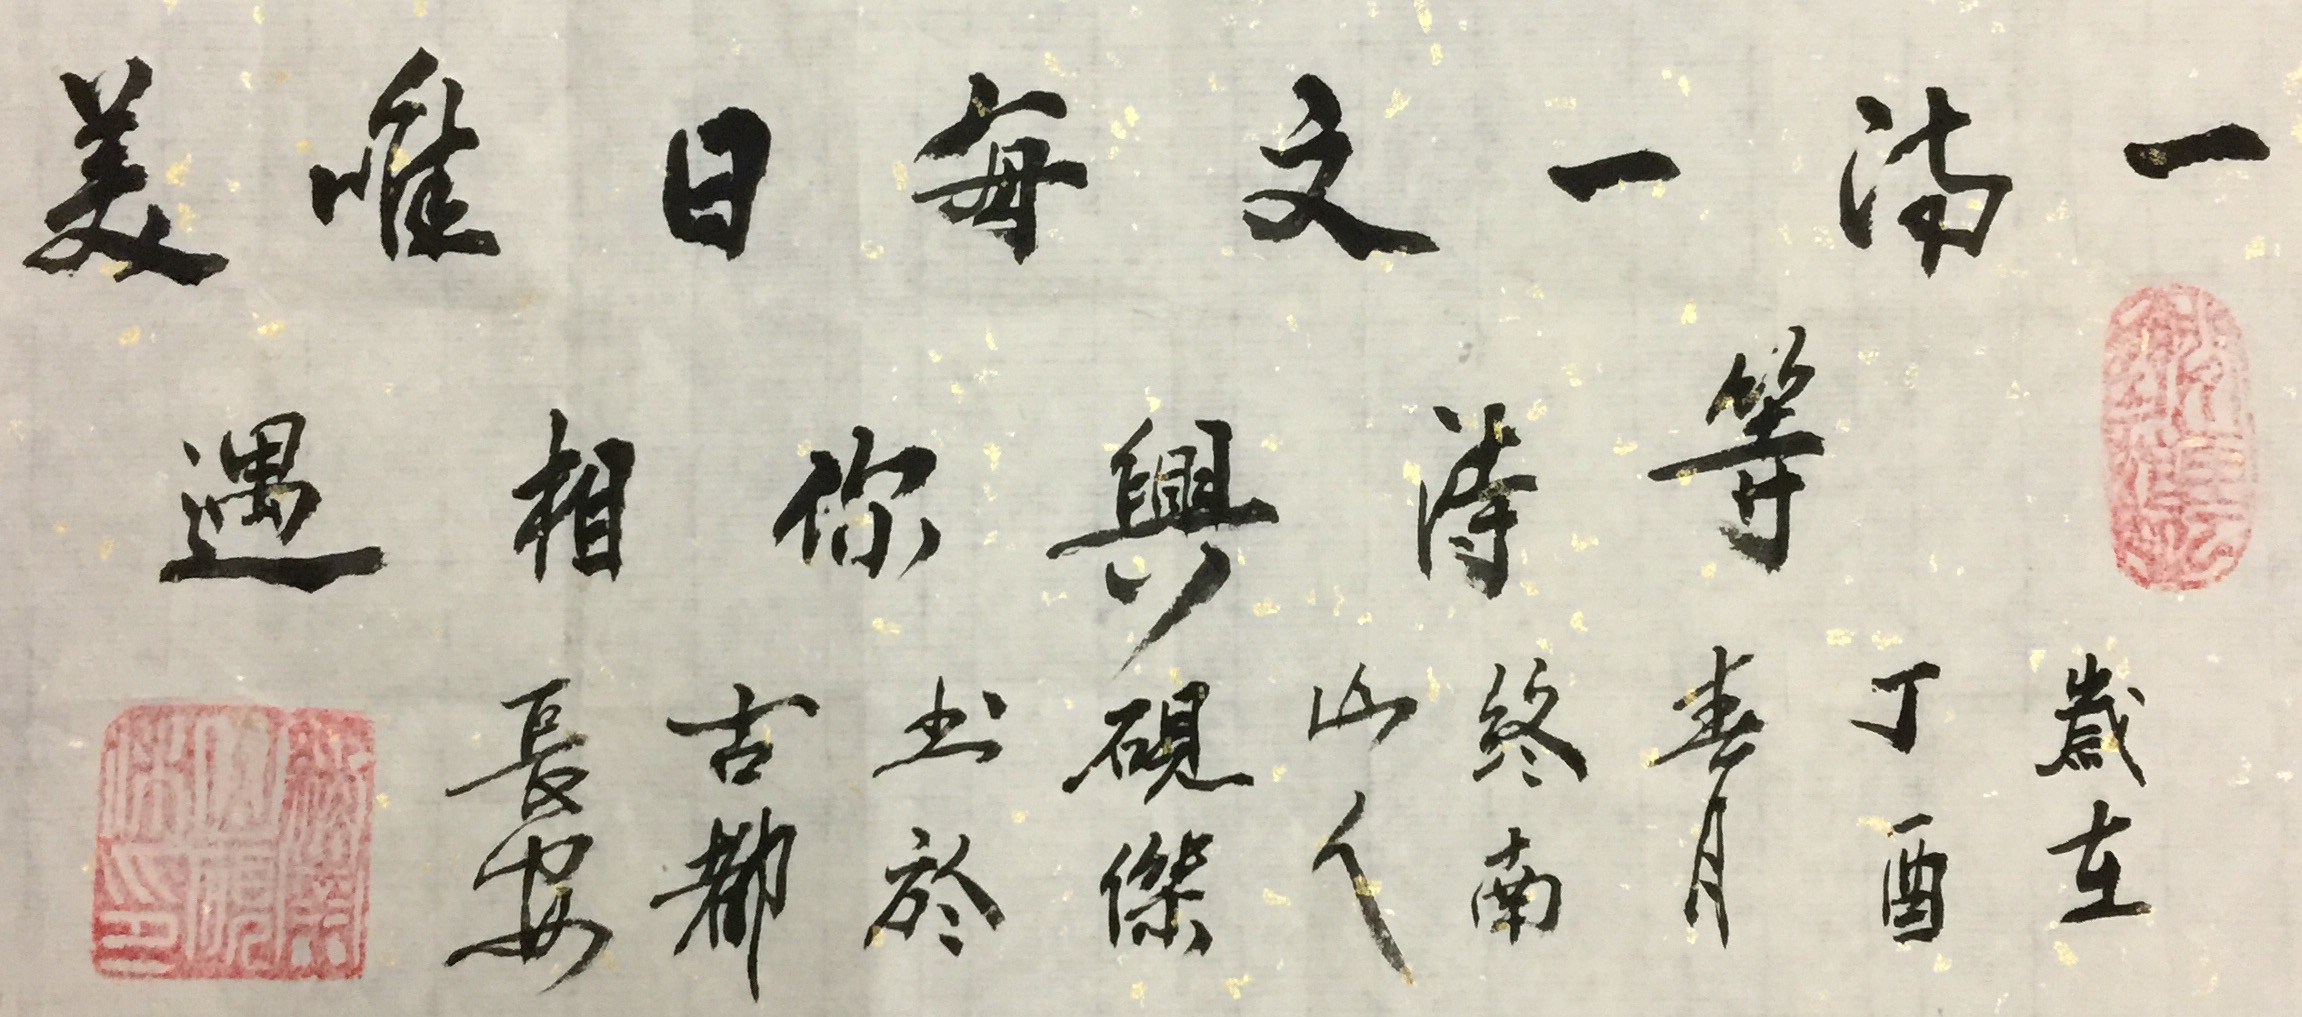 一满一文每日唯美
等待與你相遇
歲在丁酉春月終南山人硯傑书於古都長安